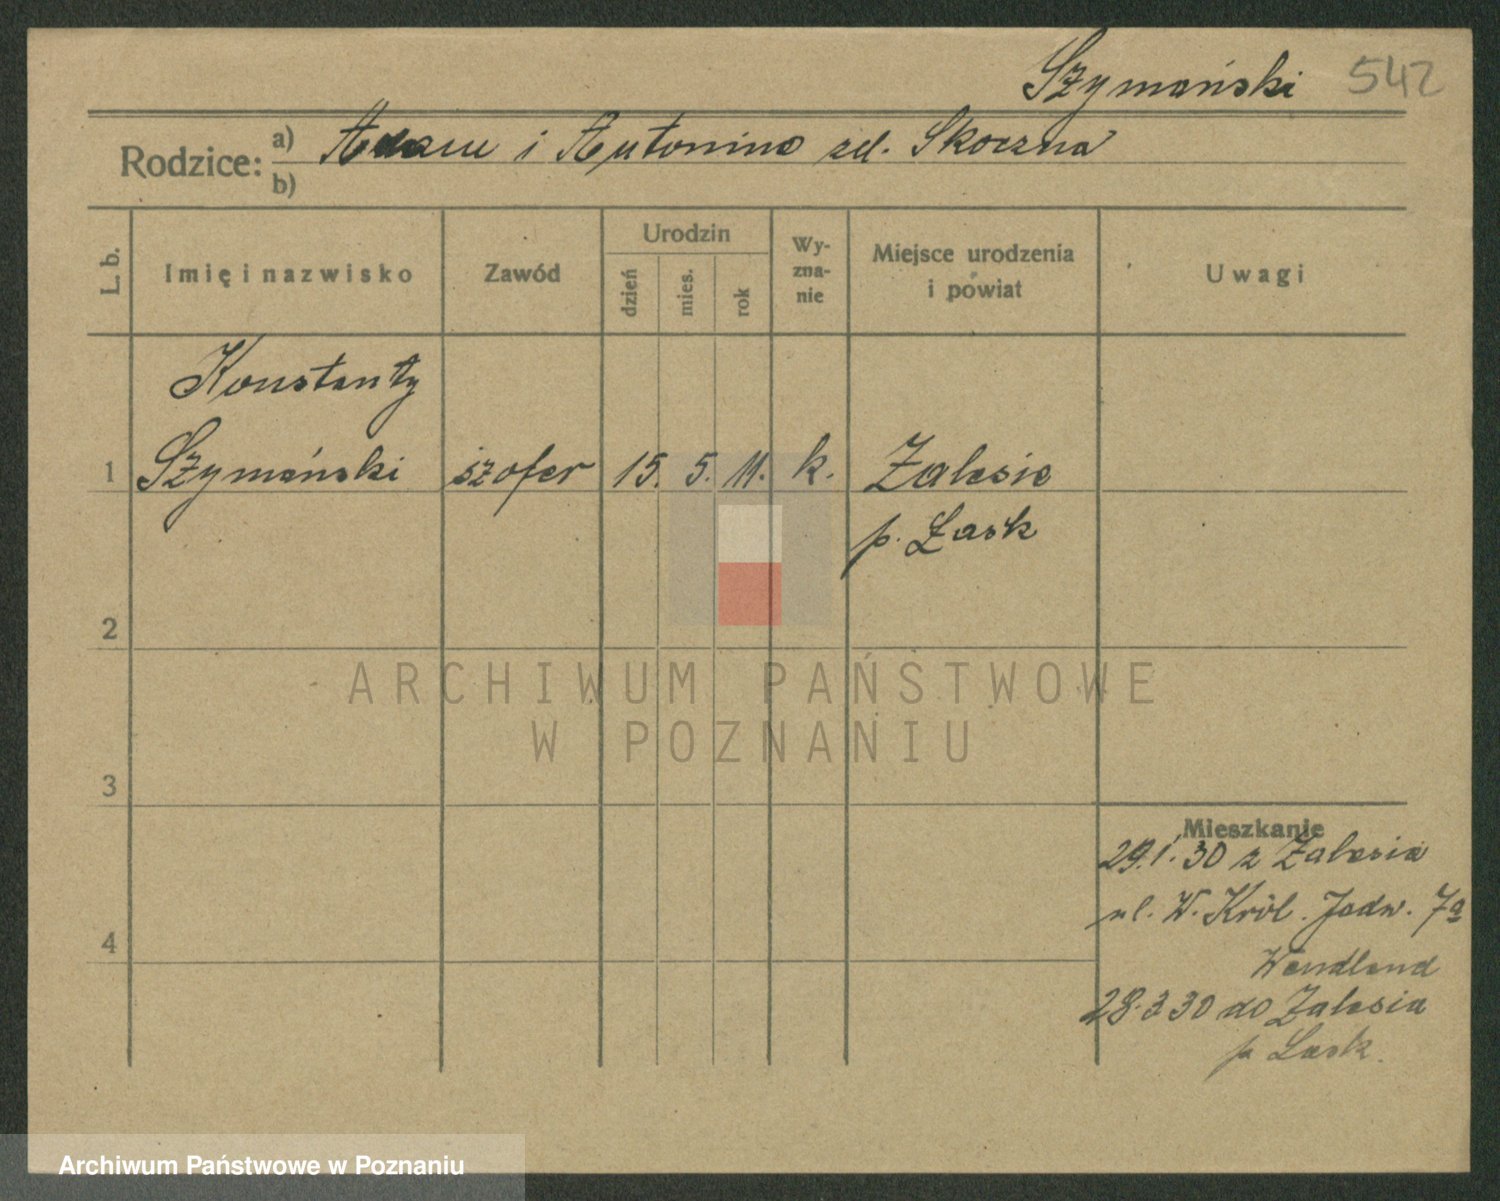 Szymański 542
Rodzice: a) Adam i Antonina zd. Skoczna
b)
L. b.
Imię i nazwisko
Zawód
Urodzin
dzień
mies.
rok
Wy-
zna-
nie
Miejsce urodzenia
i powiat
Uwagi
Konstanty
1 Szymański szofer 15. 5. 11. k. Zalesie
p. Łask
2
3
4
Mieszkanie
29.1.30 z Zalesia
ul. W. Król. Jadw. 7a
Wendland
28.3.30 do Zalesia
p Łask.
ARCHIWUM PAŃSTWOWE
W POZNANIU
Archiwum Państwowe w Poznaniu